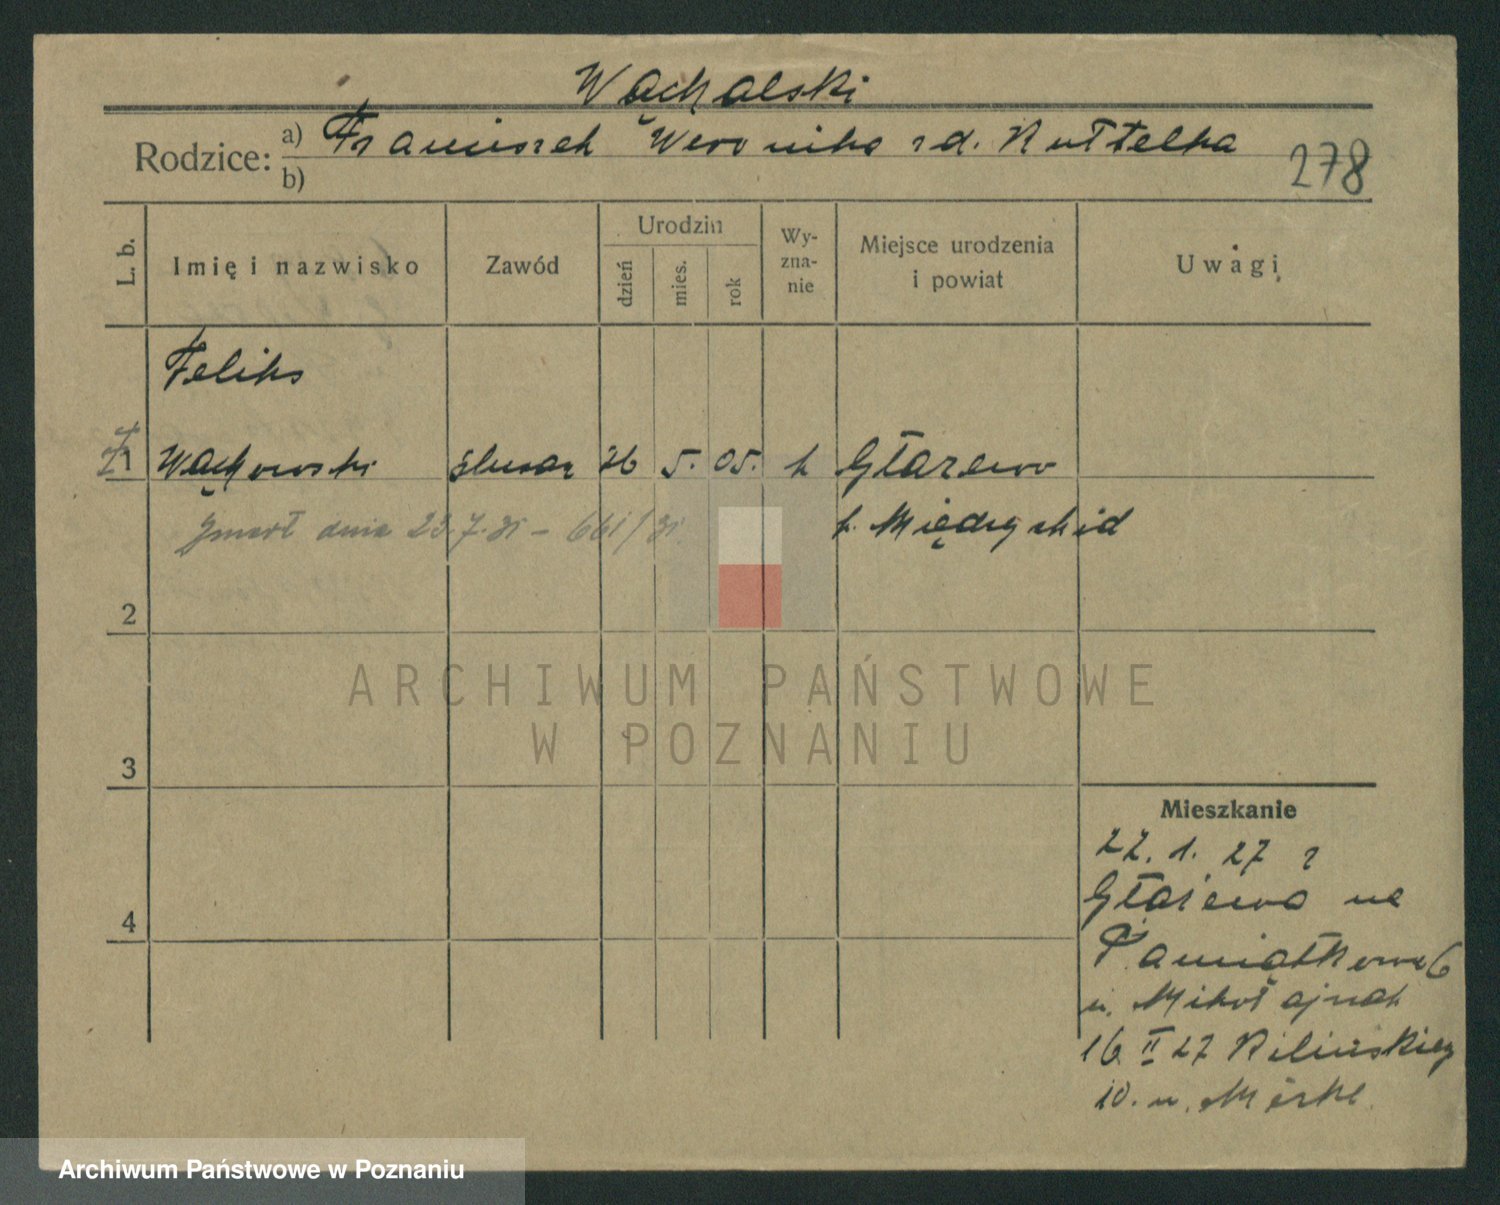 Wąchalski
Rodzice: a) Franciszek Weronika z d.
b)
278
L. b.
Imię i nazwisko
Zawód
Urodzin
dzień
mies.
rok
Wy-
zna-
nie
Miejsce urodzenia
i powiat
Uwagi
Feliks
1 Wąchowski ślusarz 26 5. 05. k Głażewo
Zmarł dnia 23.7.31 – 661/31. p. Międzychód
2
3
4
Mieszkanie
22. 1. 27 z
Głażewa na
Pamiątkowa 6
u. Mikołajczak
16 II 27 Kilińskiego
10. u.
ARCHIWUM PAŃSTWOWE
W POZNANIU
Archiwum Państwowe w Poznaniu